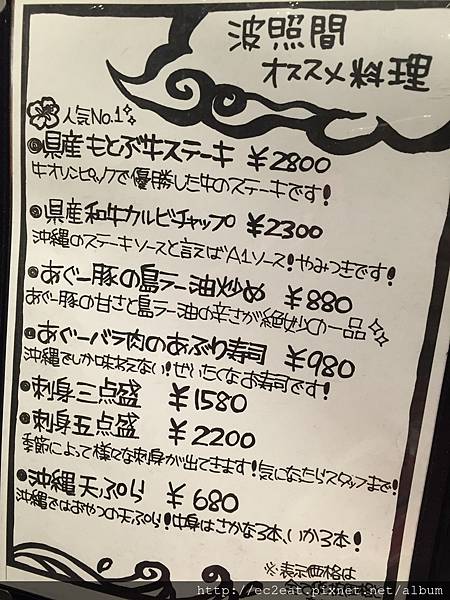 波照間
オススメ料理
人気No.1
県産もとぶ牛ステーキ ¥2800
牛オリンピックで優勝した牛のステーキです!
県産和牛カルビチャップ ¥2300
沖縄のステーキソースと言えばA1ソース!やみつきです!
あぐー豚の島ラー油炒め ¥880
あぐー豚の甘さと島ラー油の辛さが絶妙の一品
あぐーバラ肉のあぶり寿司 ¥980
沖縄でしか味わえない!ぜいたくなお寿司です!
刺身三点盛 ¥1580
刺身五点盛 ¥2200
季節によって様々な刺身が出てきます!気になたらスタッフまで!
沖縄天ぷら ¥680
沖縄ではおやつの天ぷら!中身はさかな3本、いか3本!
※表示価格は
http://ec2eat.pixnet.net/album